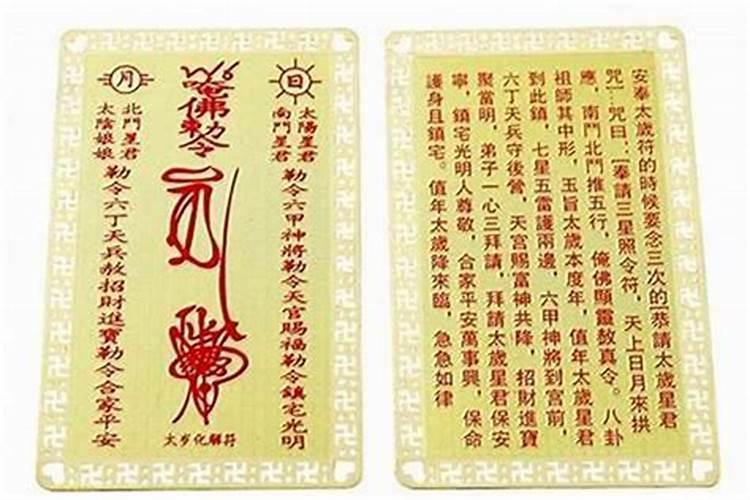 日
太陽星君
南鬥星君
勒令六甲神將勒令天官賜福勒令鎮宅光明
唵佛勅令
太岁化解符
月
北鬥星君
太陰娘娘
勒令六丁天兵敖招財進寶勒令合家平安
安奉太歲符的時候要念三次的[恭請太歲星君
咒一.咒曰:[奉請三星照令符,天上日月來拱
應,南鬥北鬥推五行,俺佛顯靈敖真令。八卦
祖師其中形,玉旨太歲本度年,值年太歲星君
到此鎮,七星五雷護兩邊,六甲神將到宮前,
六丁天兵守後營,天宮賜富神共降,招財進寶
聚當明,弟子一心三拜請,拜請太歲星君保安
寧,鎮宅光明人尊敬,合家平安萬事興,保命
護身且鎮宅。值年太歲降來臨,急急如律